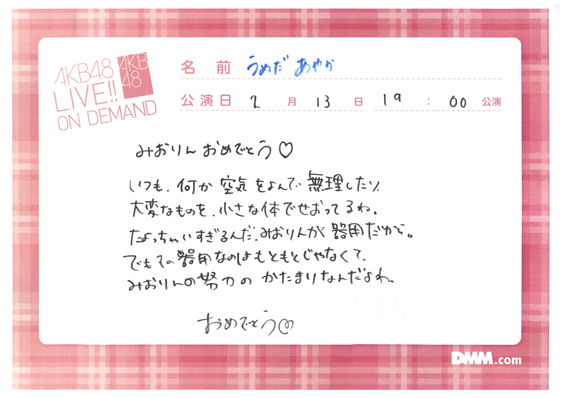 AKB48
LIVE!!
ON DEMAND
AKB
48
名前 うめだ あやか
公演日 2月13日 19:00公演
みおりん おめでとう♡
いつも、何か空気をよんで、無理したり
大変なものを、小さな体でせおってるね。
たよっちゃいすぎるんだ、みおりんが器用だから。
でもその器用なのはもともとじゃなくて、
みおりんの努力のかたまりなんだよね。
おめでとう♡
DMM.com